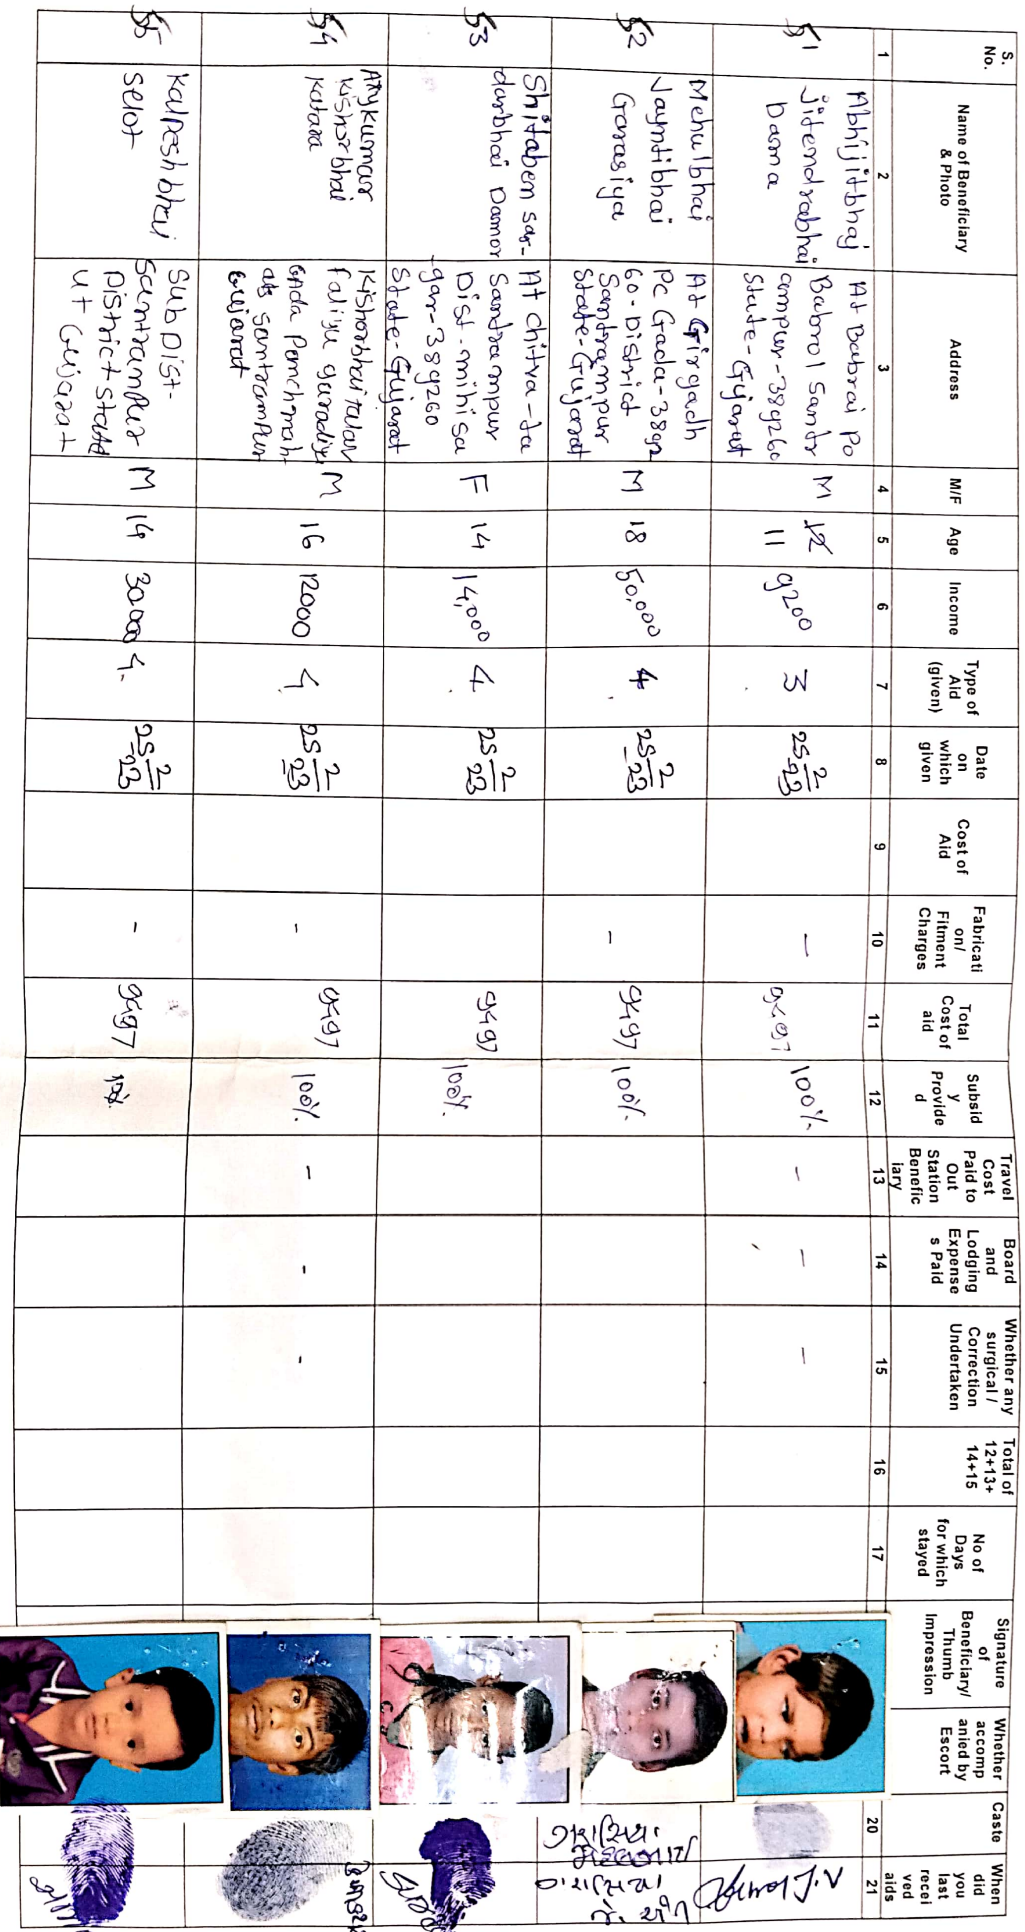 S. No.
Name of Beneficiary & Photo
Address
M/F
Age
Income
Type of Aid (given)
Date on which given
Cost of Aid
Fabricati on/ Fitment Charges
Total Cost of aid
Subsid y Provide d
Travel Cost Paid to Out Station Benefic iary
Board and Lodging Expense s Paid
Whether any surgical / Correction Undertaken
Total of 12+13+ 14+15
No of Days for which stayed
Signature of Beneficiary/ Thumb Impression
Whether accomp anied by Escort
Caste
When did you last recei ved aids
1 2 3 4 5 6 7 8 9 10 11 12 13 14 15 16 17 20 21
51
Abhijitbhai
Jitendrabhai
Dama
At Babrai Po
Babrol Santr
ampur-389260
State-Gujarat
M
12
11
9200
3
25 2/23
-
9497
100%
-
-
-
52
Mehulbhai
Jayntibhai
Garasiya
At Girgadh
Po Gada-3892
60-District
Santrampur
State-Gujarat
M
18
50,000
4
25 2/23
-
9497
100%
53
Shitaben sar-
darbhai Damor
At chitva-ta
Santrampur
Dist-mihisa
-gar-389260
State-Gujarat
F
14
14,000
4
25 2/23
9497
100%
54
kishorbhai
katara
Kishorbhai talav
faliyu
santrampur
Gujarat
M
16
12000
4
25 2/23
-
9497
100%
-
-
-
55
Kalpeshbhai
selot
Sub Dist-
Santrampur
District State
ut Gujarat
M
14
30000
4
25 2/23
-
9497